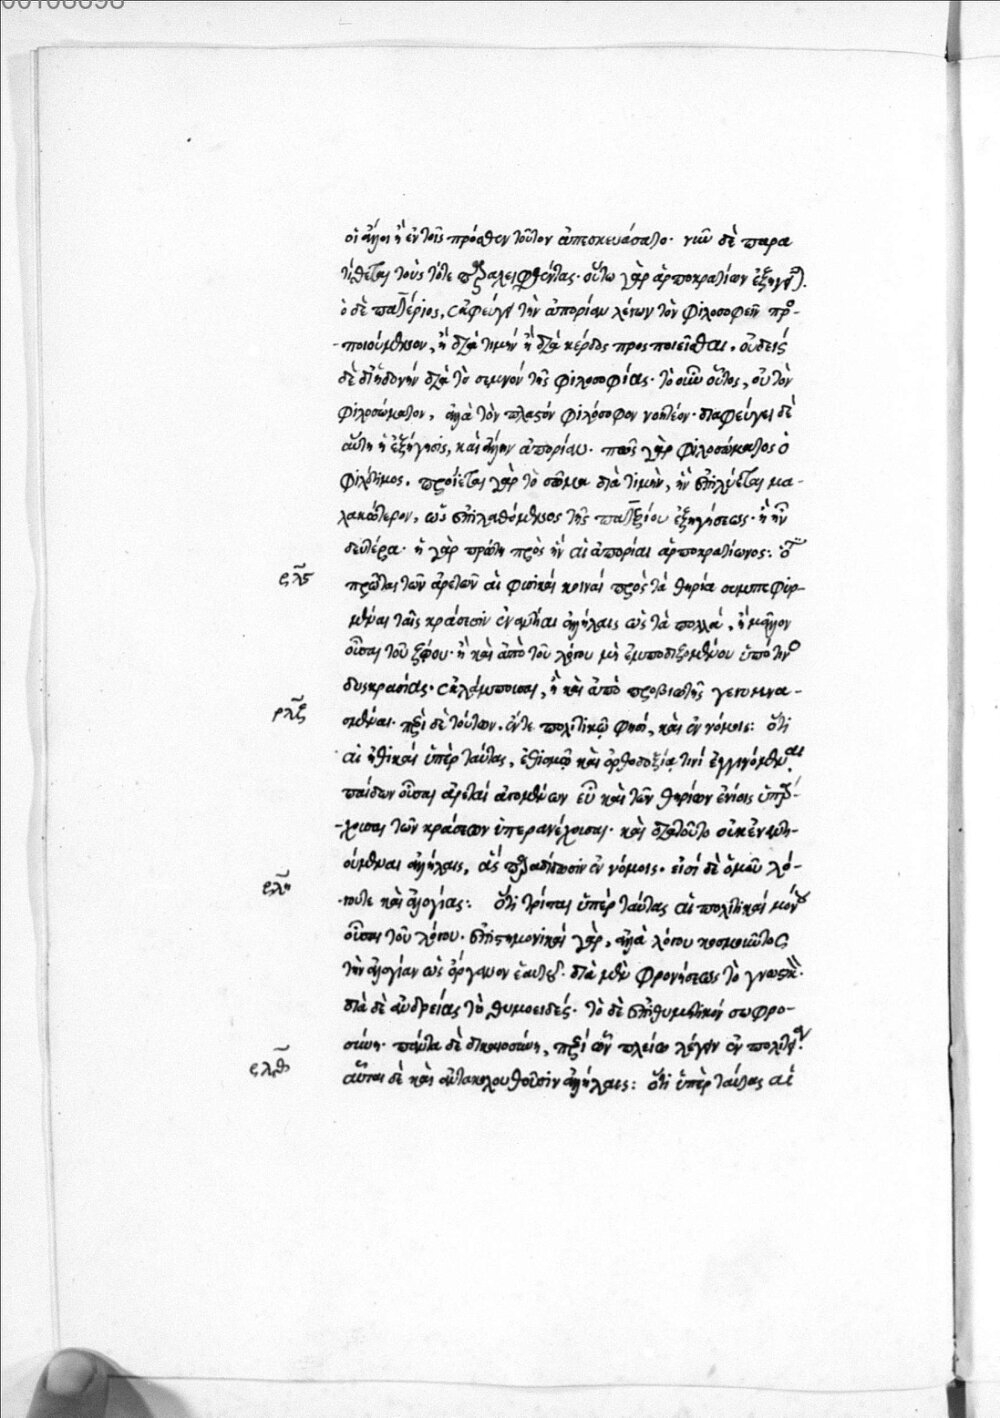 οἱ ἄλλοι ἢ ἐν τοῖς πρόσθεν τοῦτον ἀπεσκευάσατο· νῦν δὲ παρα
τίθεται τοὺς τότε παραλειφθέντας· οὕτω γὰρ ἁρποκρατίων ἐξηγεῖται.
ὁ δὲ πατέριος, ἐκφεύγει τὴν ἀπορίαν λέγων τὸν φιλοσοφεῖν προσ-
-ποιούμενον, ἢ διὰ τιμὴν ἢ διὰ κέρδος προσποιεῖσθαι. οὐδεὶς
δὲ δι' ἡδονὴν διὰ τὸ σεμνὸν τῆς φιλοσοφίας· τὸ οὖν οὗτος, οὐ τὸν
φιλοσώματον, ἀλλὰ τὸν πλαστὸν φιλόσοφον νοητέον· διαφεύγει δὲ
αὕτη ἡ ἐξήγησις, καὶ ἄλλην ἀπορίαν· πῶς γὰρ φιλοσώματος ὁ
φιλότιμος. προΐεται γὰρ τὸ σῶμα διὰ τιμὴν, ἣν ἐπιλύεται μα-
λακώτερον, ὡς ἐπιλαθόμενος τῆς πατερίου ἐξηγήσεως· ἢ ἦν
δευτέρα· ἡ γὰρ πρώτη πρὸς ἣν αἱ ἀπορίαι ἁρποκρατίωνος: ὅτι
ρλϛ
πρῶται τῶν ἀρετῶν αἱ φυσικαὶ κοιναὶ πρὸς τὰ θηρία συμπεφυρ-
μέναι ταῖς κράσεσιν ἐναντίαι ἀλλήλαις ὡς τὰ πολλά, ἢ μᾶλλον
οὖσαι τοῦ ζῴου· ἢ καὶ ἀπὸ τοῦ λόγου μὴ ἐμποδιζομένου ὑπό τινος
δυσκρασίας· ἐκλάμπουσαι, ἢ καὶ ἀπὸ προβιοτῆς γεγυμνα-
ρλζ
σμέναι· περὶ δὲ τούτων. ἔν τε πολιτικῷ φησὶ, καὶ ἐν νόμοις: ὅτι
αἱ ἠθικαὶ ὑπὲρ ταύτας, ἐθισμῷ καὶ ὀρθοδοξίᾳ τινὶ ἐγγινόμεναι,
παίδων οὖσαι ἀρεταὶ ἀγομένων εὖ καὶ τῶν θηρίων ἐνίοις ὑπάρ-
-χουσαι τῶν κράσεων ὑπερανέχουσαι· καὶ διὰ τοῦτο οὐκ ἐναντι-
ούμεναι ἀλλήλαις, ἃς παραδίδωσιν ἐν νόμοις. εἰσὶ δὲ ὁμοῦ λό-
ρλη
-γου τε καὶ ἀλογίας: ὅτι τρίται ὑπὲρ ταύτας αἱ πολιτικαὶ μόνου
οὖσαι τοῦ λόγου· ἐπιστημονικαὶ γὰρ, ἀλλὰ λόγου κοσμοῦντος
τὴν ἀλογίαν ὡς ὄργανον ἑαυτοῦ· διὰ μὲν φρονήσεως τὸ γνωστικὸν·
διὰ δὲ ἀνδρείας τὸ θυμοειδές· τὸ δὲ ἐπιθυμητικὸν σωφρο-
σύνῃ· πάντα δὲ δικαιοσύνῃ, περὶ ὧν πλείω λέγει ἐν πολιτείᾳ.
ρλθ
αὗται δὲ καὶ ἀντακολουθοῦσιν ἀλλήλαις: ὅτι ὑπὲρ ταύτας αἱ